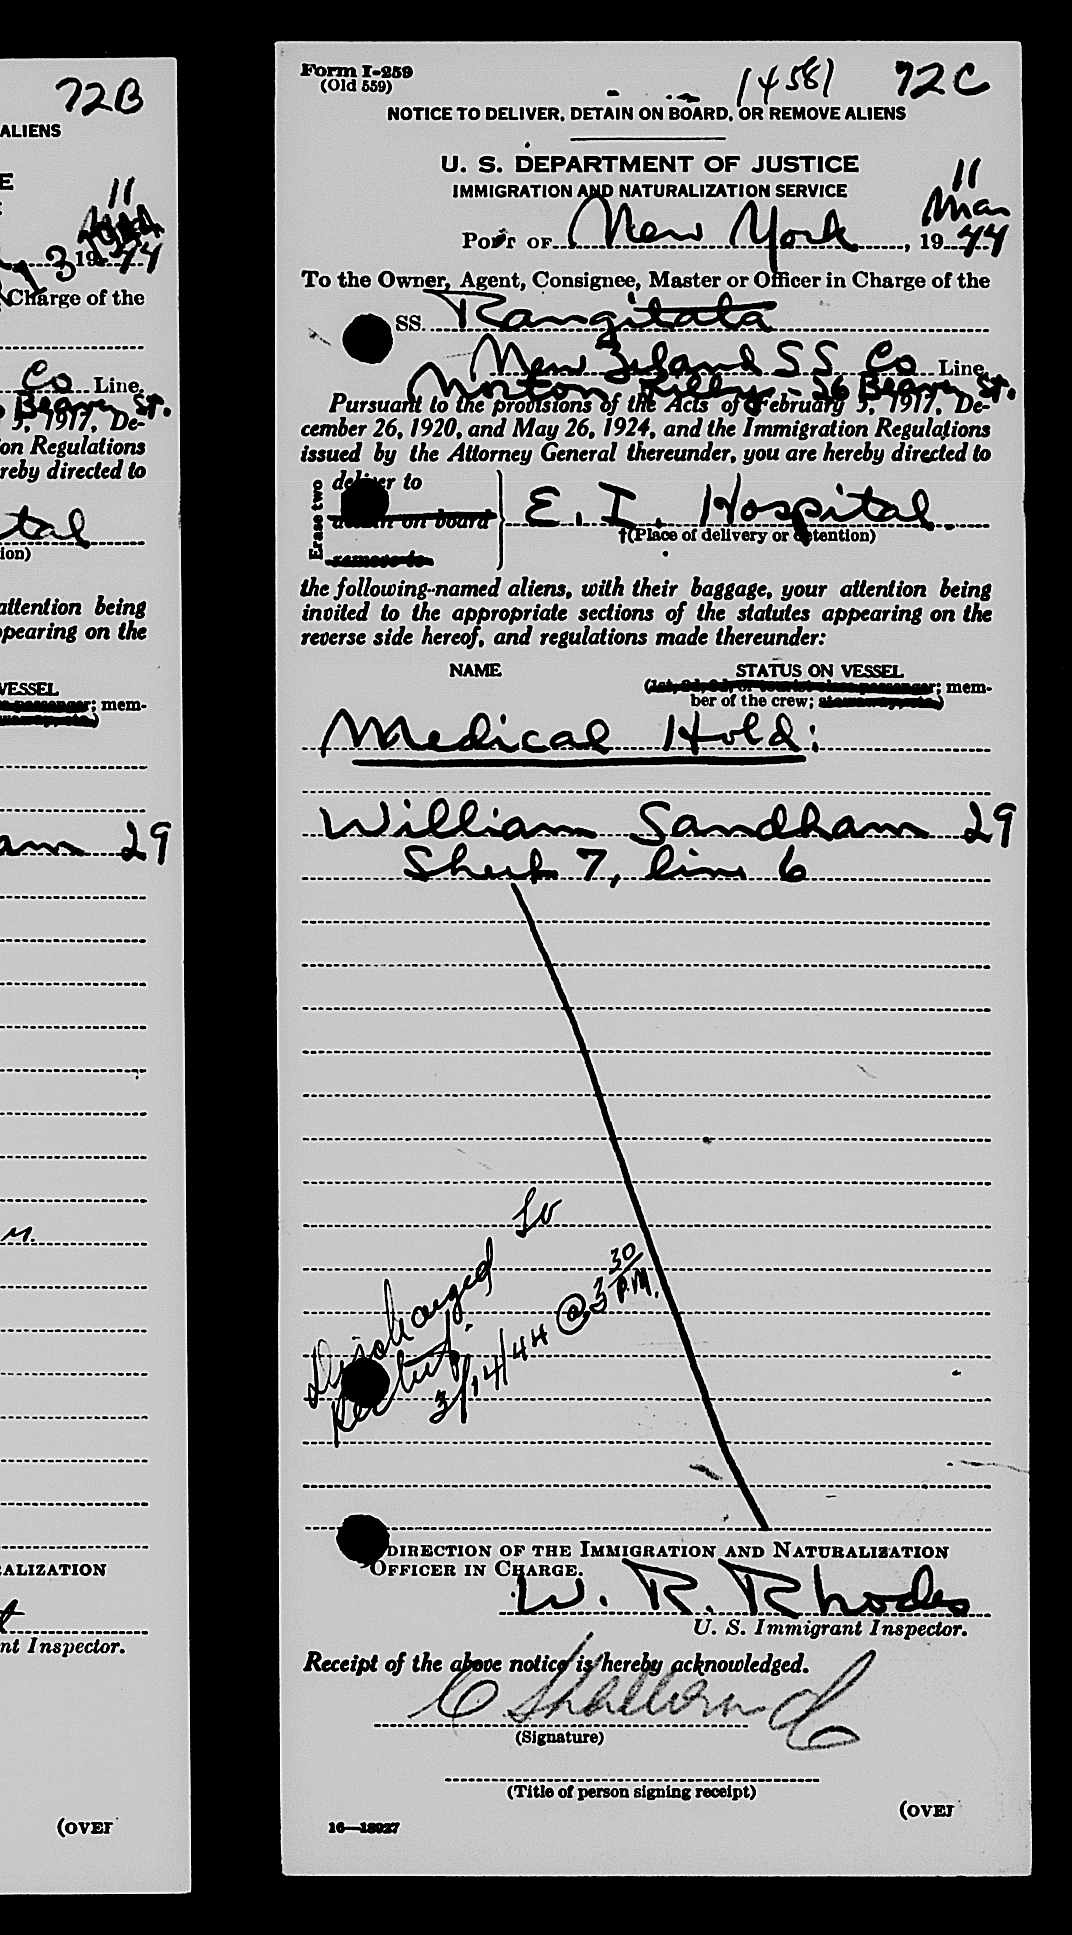 72B
ALIENS
E
11
3 19 44
Charge of the
Co Line,
Beaver St.
5, 1917, De-
on Regulations
reby directed to
tal
ion)
attention being
ppearing on the
VESSEL
passenger; mem-
am 29
M.
ALIZATION
nt Inspector.
(OVER
Form I-259
(Old 559)
14581 72C
NOTICE TO DELIVER, DETAIN ON BOARD, OR REMOVE ALIENS
U. S. DEPARTMENT OF JUSTICE
IMMIGRATION AND NATURALIZATION SERVICE
11
Mar
PORT OF New York, 19 44
To the Owner, Agent, Consignee, Master or Officer in Charge of the
SS. Rangitata
New Zeland S S Co Line,
Norton Lilley - 26 Beaver St.
Pursuant to the provisions of the Acts of February 5, 1917, De-
cember 26, 1920, and May 26, 1924, and the Immigration Regulations
issued by the Attorney General thereunder, you are hereby directed to
Erase two
deliver to
detain on board
remove to
E. I. Hospital.
†(Place of delivery or detention)
the following-named aliens, with their baggage, your attention being
invited to the appropriate sections of the statutes appearing on the
reverse side hereof, and regulations made thereunder:
NAME STATUS ON VESSEL
(1st, 2d, 3d, or tourist class passenger; mem-
ber of the crew; stowaway, etc.)
Medical Hold:
William Sandham 29
Sheet 7, line 6
Discharged to
3/14/44 @ 3 30 P.M.
DIRECTION OF THE IMMIGRATION AND NATURALIZATION
OFFICER IN CHARGE.
W. R. Rhodes
U. S. Immigrant Inspector.
Receipt of the above notice is hereby acknowledged.
(Signature)
(Title of person signing receipt)
16—18027
(OVER